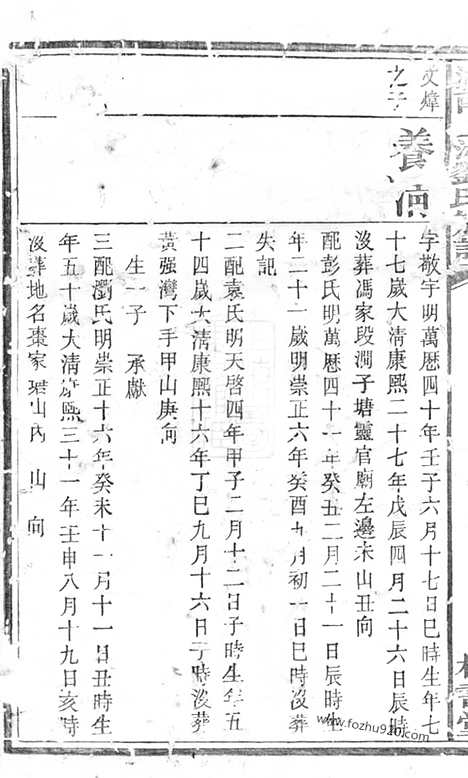 劉氏宗譜
文煒
之子
養
字敬宇明萬曆四十年壬子六月十七日巳時生年七
十七歲大清康熙二十七年戊辰四月二十六日辰時
沒葬馮家段澗子塘靈官廟左邊未山丑向
配彭氏明萬曆四十一年癸丑二月二十一日辰時生
年二十一歲明崇正六年癸酉九月初一日巳時沒葬
失記
二配袁氏明天啓四年甲子二月十二日子時生年五
十四歲大清康熙十六年丁巳九月十六日子時沒葬
黃强灣下手甲山庚向
生一子 承獻
三配劉氏明崇正十六年癸未十一月十一日丑時生
年五十歲大清康熙三十一年壬申八月十九日亥時
沒葬地名棗家 山內 山 向
www.fozhu920.com